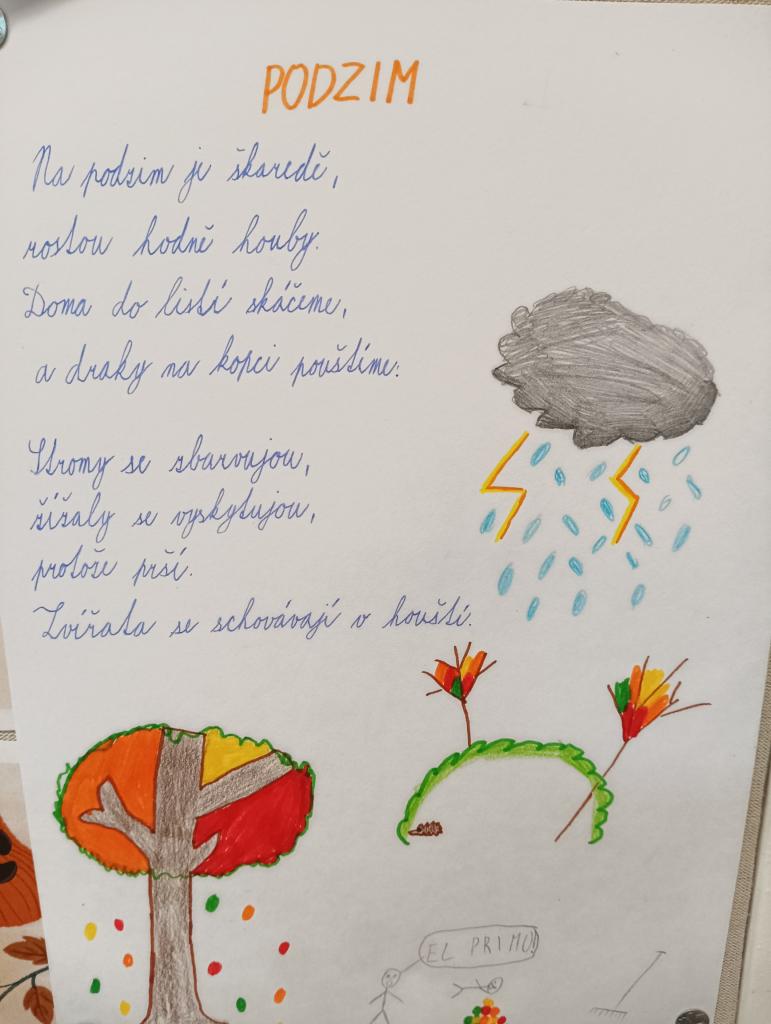 PODZIM
Na podzim je škaredě,
rostou hodně houby.
Doma do listí skáčeme,
a draky na kopci pouštíme.
Stromy se zbarvujou,
žížaly se vyskytujou,
protože prší.
Zvířata se schovávají v houští.
EL PRIMO!